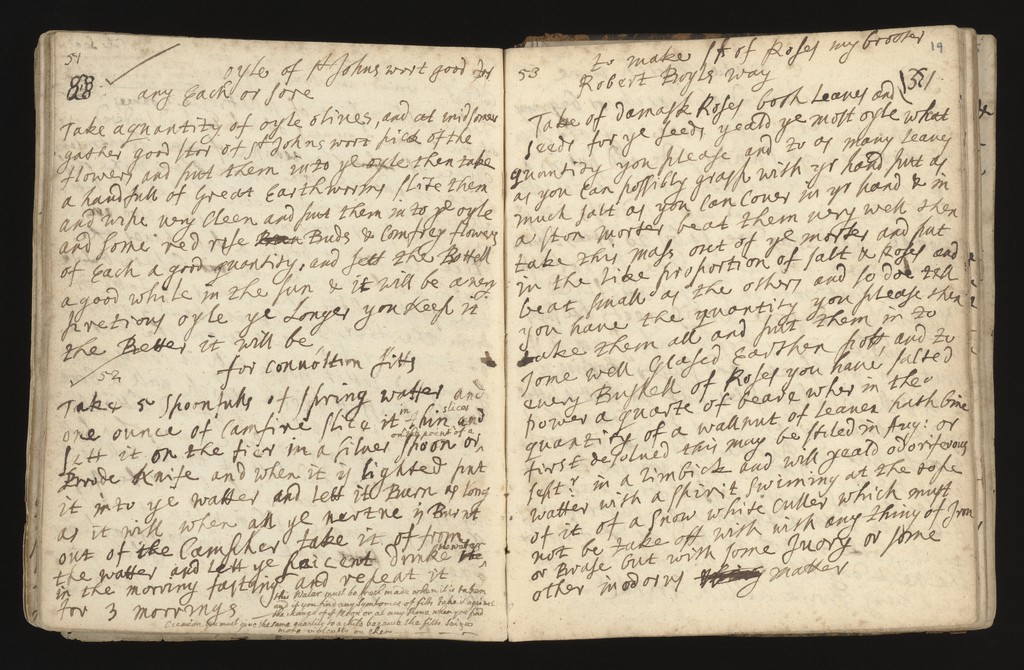 51
88
oyle of St Johns wort good for
any Each or sore
Take a quantity of oyle olives, and at midsomer
gather good stor of St Johns wort pick of the
flowers and put them into ye oyle then take
a handfull of Great Earthworms slite them
and wipe very Cleen and put them in to ye oyle
and some red rose Buds & Comfrey flowers
of Each a good quantity, and sett the Bottell
a good while in the sun & it will be a very
pretious oyle ye Longer you Keep it
the Better it will be
for convultion fitts
52
Take 5 spoonfulls of spring watter and
one ounce of Camfire slice it in thin slices and
sett it on the fier in a silver spoon or on the point of a
Brode Knife and when it is lighted put
it into ye watter and Lett it Burn as long
as it will when all ye vertue is Burnt
out of the Campher take it of from
the watter and Lett ye pacient drinke the watter
in the morning fasting and repeat it
for 3 mornings
this Water must be fresh made when it is taken
and if you find any symtomes of fitts take it against
the change of ye Moon or at any time when you find
Occasion you must give the same quantity to a child because the fitts seizes
more violently on them
19
53
to make St of Roses my brother
Robert Boyls way
(351)
Take of Damask Roses both Leaves and
seeds for ye seeds yeald ye most oyle what
quantity you please and to as many Leaves
as you Can possibly grasp with yr hand put as
much salt as you can Cover in yr hand & in
a ston morter beat them very well then
take this mass out of ye morter and put
in the like proportion of salt & Roses and
beat small as the others and so doe till
you have the quantity you please then
take them all and put them in to
some well Glased Earthen pott, and to
every Bushell of Roses you have salted
power a quarte of beare wher in the
quantity of a wallnut of leaven hath bine
first desolved this may be stiled in Aug: or
Septr in a limbick and will yeald odoriferous
watter with a spirit swimming at the tope
of it of a snow white Culler which must
not be take off with with any thing of Iron
or Brase but with some Ivory or some
other inodorus matter